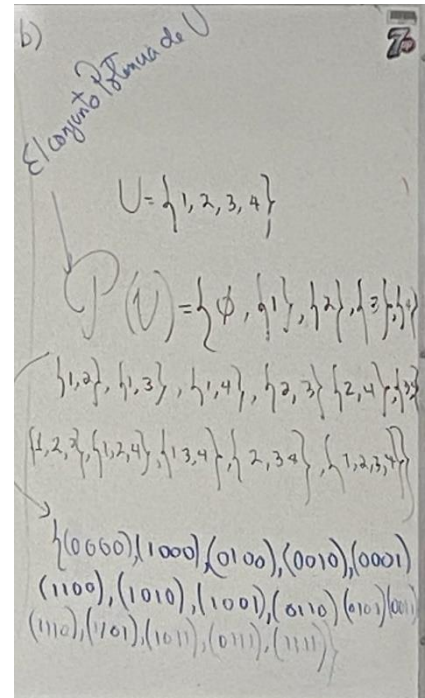 b)
El conjunto Potencia de U
U={1,2,3,4}
P(U)={∅,{1},{2},{3},{4}
{1,2},{1,3},{1,4},{2,3}{2,4},{3,4}
{1,2,3},{1,2,4},{1 3,4},{2,3 4},{1,2,3,4}}
{(0000),(1000),(0100),(0010),(0001)
(1100),(1010),(1001),(0110)(0101)(0011)
(1110),(1101),(1011),(0111),(1111)}